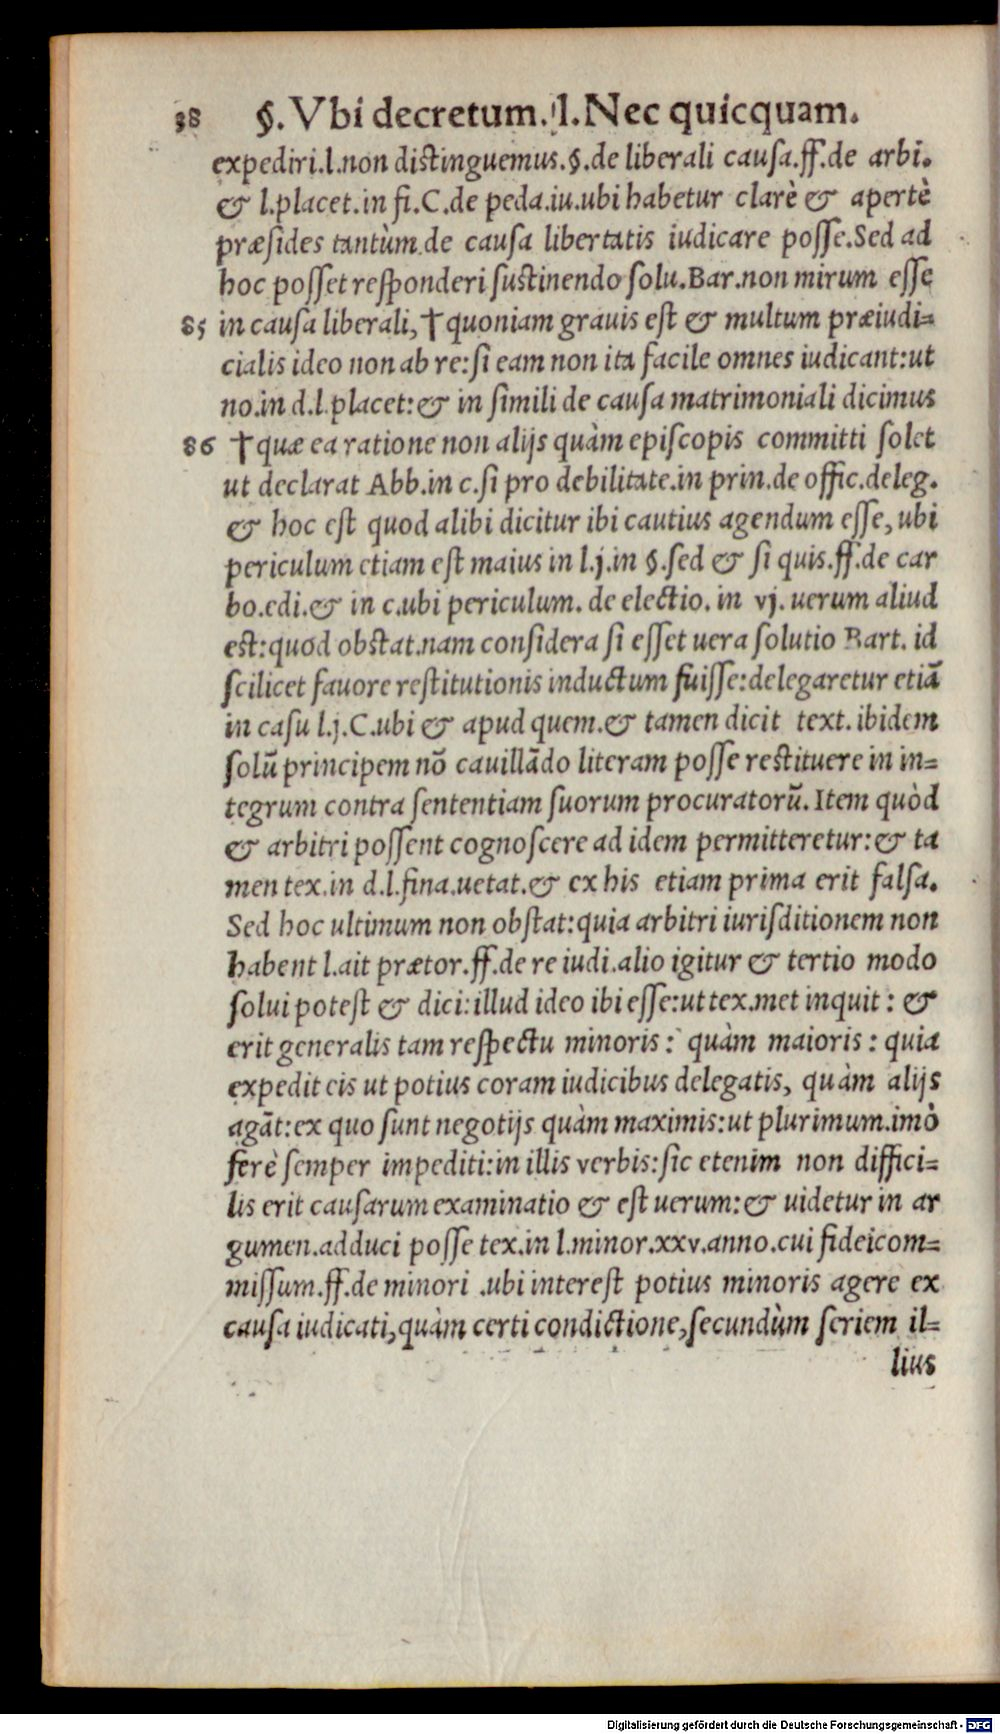 38 §. Vbi decretum. l. Nec quicquam.
expediri.l.non distinguemus.§.de liberali causa.ff.de arbi.
& l.placet.in fi.C.de peda.iu.ubi habetur clarè & apertè
præsides tantùm de causa libertatis iudicare posse.Sed ad
hoc posset responderi sustinendo solu.Bar.non mirum esse
85 in causa liberali, † quoniam grauis est & multum præiudi=
cialis ideo non ab re:si eam non ita facile omnes iudicant:ut
no.in d.l.placet:& in simili de causa matrimoniali dicimus
86 † quæ ea ratione non alijs quàm episcopis committi solet
ut declarat Abb.in c.si pro debilitate.in prin.de offic.deleg.
& hoc est quod alibi dicitur ibi cautius agendum esse, ubi
periculum etiam est maius in l.j.in §.sed & si quis.ff.de car
bo.edi.& in c.ubi periculum. de electio. in vj. uerum aliud
est:quod obstat.nam considera si esset uera solutio Bart. id
scilicet fauore restitutionis inductum fuisse:delegaretur etiã
in casu l.j.C.ubi & apud quem.& tamen dicit text. ibidem
solũ principem nõ cauillãdo literam posse restituere in in=
tegrum contra sententiam suorum procuratorũ. Item quòd
& arbitri possent cognoscere ad idem permitteretur:& ta
men tex.in d.l.fina.uetat.& ex his etiam prima erit falsa.
Sed hoc ultimum non obstat:quia arbitri iurisditionem non
habent l.ait prætor.ff.de re iudi.alio igitur & tertio modo
solui potest & dici:illud ideo ibi esse:ut tex.met inquit : &
erit generalis tam respectu minoris : quàm maioris : quia
expedit eis ut potius coram iudicibus delegatis, quàm alijs
agãt:ex quo sunt negotijs quàm maximis:ut plurimum.imò
ferè semper impediti:in illis verbis:sic etenim non diffici=
lis erit causarum examinatio & est uerum:& uidetur in ar
gumen.adduci posse tex.in l.minor.xxv.anno.cui fideicom=
missum.ff.de minori .ubi interest potius minoris agere ex
causa iudicati,quàm certi condictione,secundùm seriem il=
lius
Digitalisierung gefördert durch die Deutsche Forschungsgemeinschaft - DFG